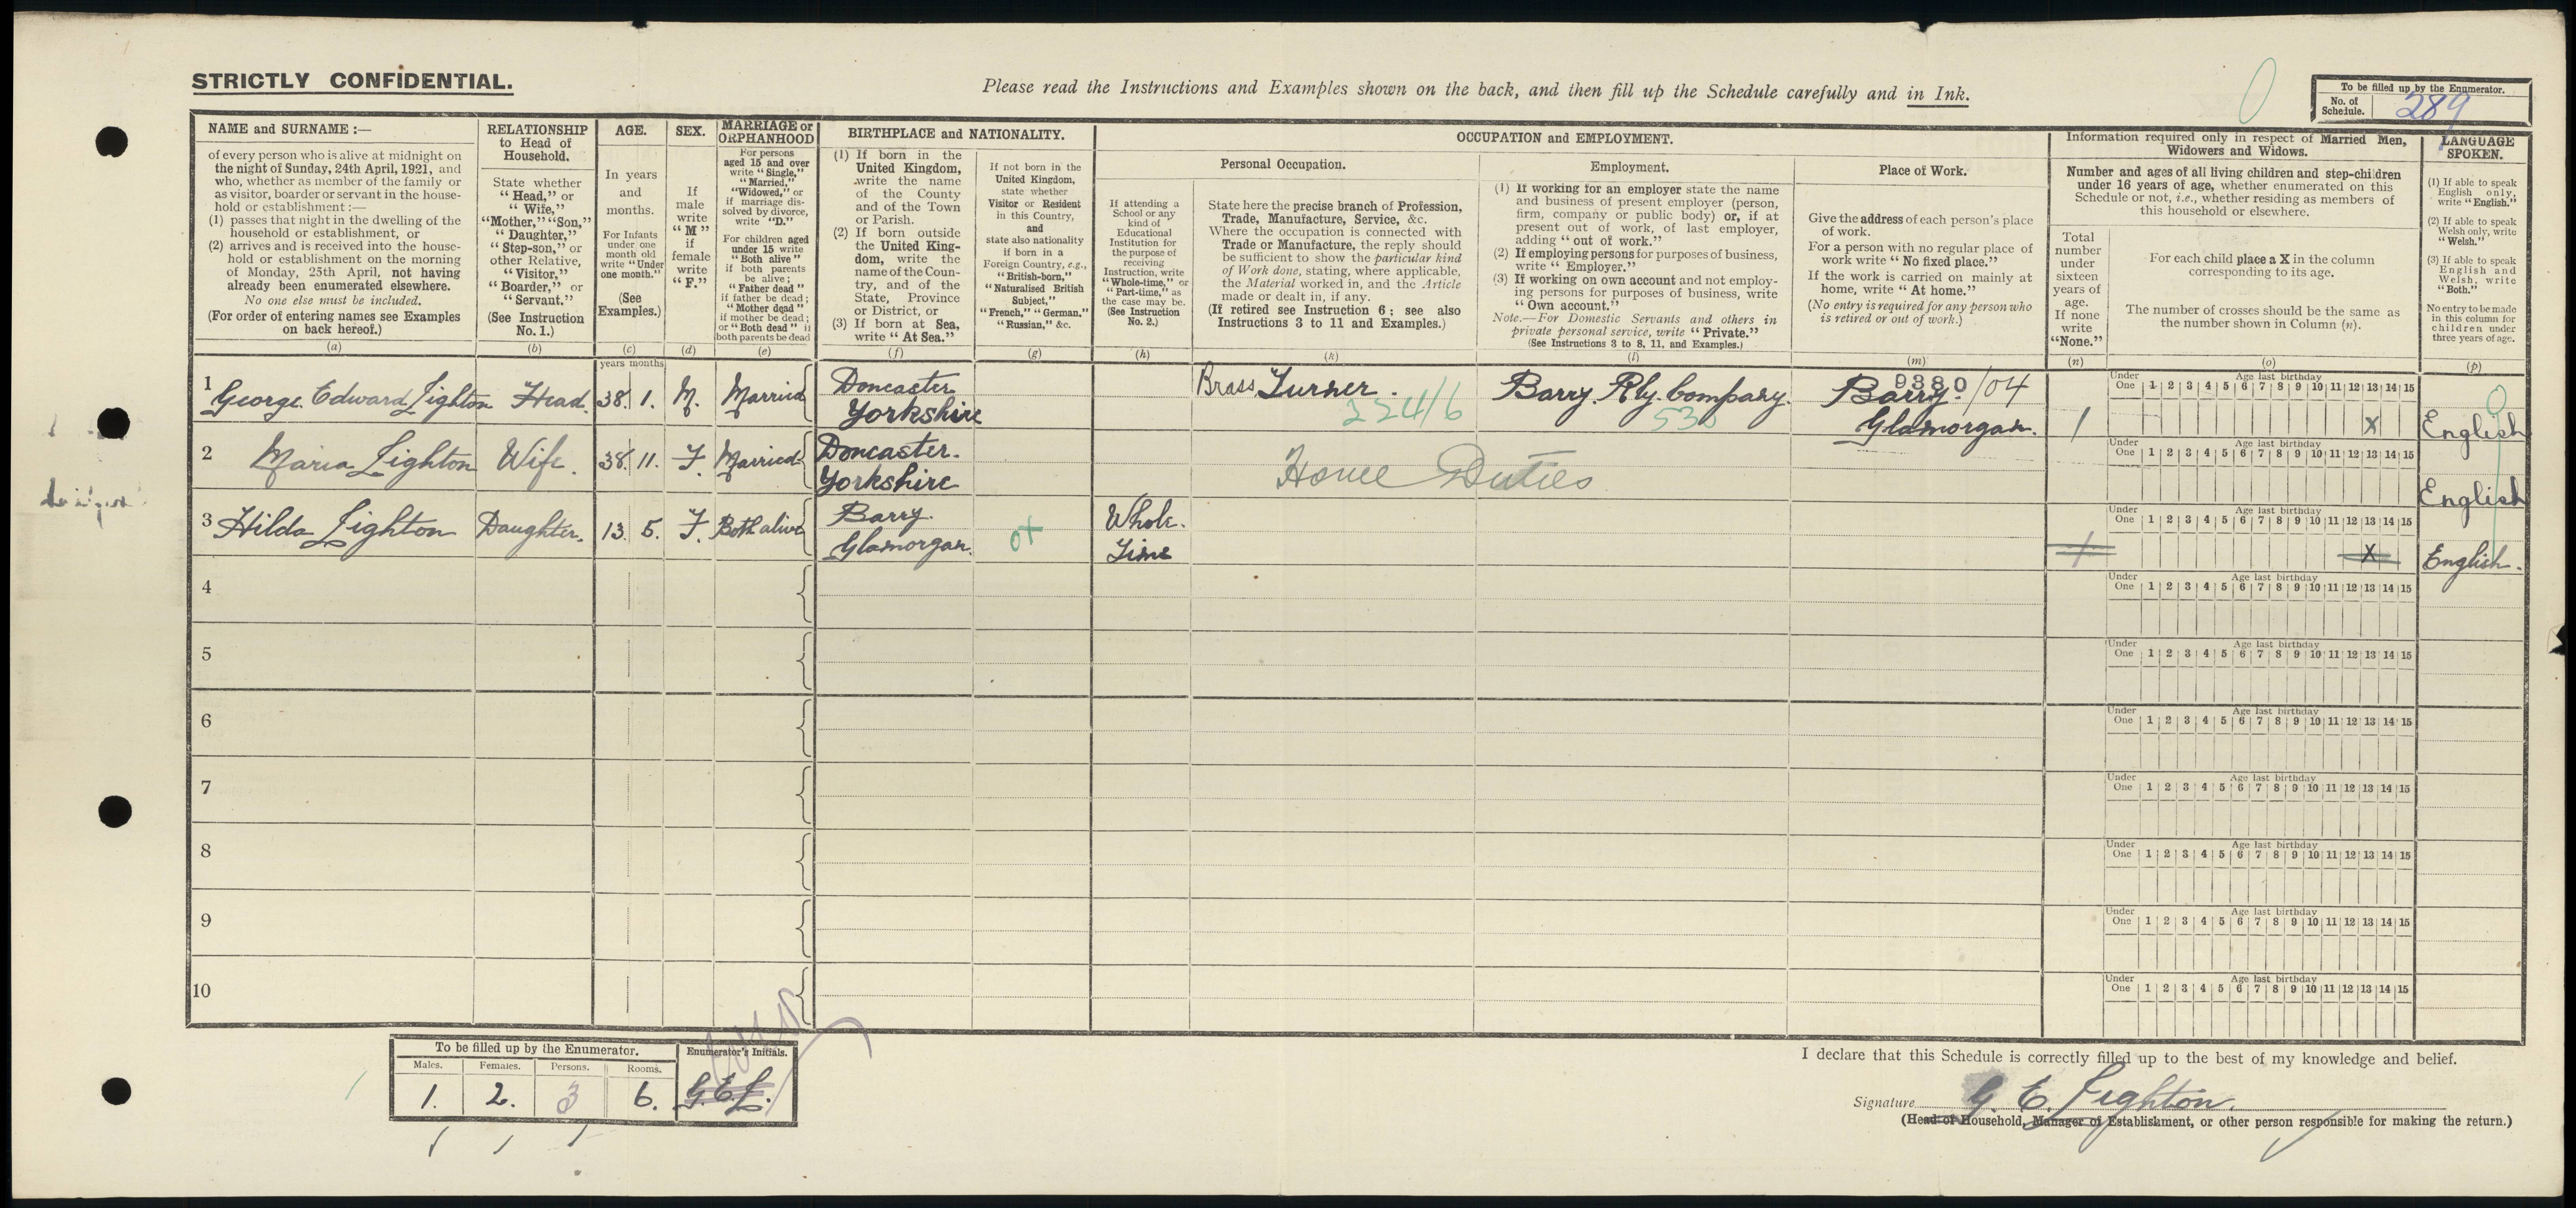 STRICTLY CONFIDENTIAL.
Please read the Instructions and Examples shown on the back, and then fill up the Schedule carefully and in Ink.
To be filled up by the Enumerator.
No. of Schedule. 289
NAME and SURNAME :—
of every person who is alive at midnight on
the night of Sunday, 24th April, 1921, and
who, whether as member of the family or
as visitor, boarder or servant in the house-
hold or establishment :—
(1) passes that night in the dwelling of the
household or establishment, or
(2) arrives and is received into the house-
hold or establishment on the morning
of Monday, 25th April, not having
already been enumerated elsewhere.
No one else must be included.
(For order of entering names see Examples
on back hereof.)
(a)
RELATIONSHIP
to Head of
Household.
State whether
"Head," or
"Wife,"
"Mother," "Son,"
"Daughter,"
"Step-son," or
other Relative,
"Visitor,"
"Boarder," or
"Servant."
(See Instruction
No. 1.)
(b)
AGE.
In years
and
months.
For Infants
under one
month old
write "Under
one month."
(See
Examples.)
(c)
years months
SEX.
If
male
write
"M"
if
female
write
"F."
(d)
MARRIAGE or
ORPHANHOOD
For persons
aged 15 and over
write "Single,"
"Married,"
"Widowed," or
if marriage dis-
solved by divorce,
write "D."
For children aged
under 15 write
"Both alive"
if both parents
be alive;
"Father dead"
if father be dead;
"Mother dead"
if mother be dead;
or "Both dead" if
both parents be dead
(e)
BIRTHPLACE and NATIONALITY.
(1) If born in the
United Kingdom,
write the name
of the County
and of the Town
or Parish.
(2) If born outside
the United King-
dom, write the
name of the Coun-
try, and of the
State, Province
or District, or
(3) If born at Sea,
write "At Sea."
(f)
If not born in the
United Kingdom,
state whether
Visitor or Resident
in this Country,
and
state also nationality
if born in a
Foreign Country, e.g.,
"British-born,"
"Naturalised British
Subject,"
"French," "German."
"Russian," &c.
(g)
OCCUPATION and EMPLOYMENT.
If attending a
School or any
kind of
Educational
Institution for
the purpose of
receiving
Instruction, write
"Whole-time," or
"Part-time," as
the case may be.
(See Instruction
No. 2.)
(h)
Personal Occupation.
State here the precise branch of Profession,
Trade, Manufacture, Service, &c.
Where the occupation is connected with
Trade or Manufacture, the reply should
be sufficient to show the particular kind
of Work done, stating, where applicable,
the Material worked in, and the Article
made or dealt in, if any.
(If retired see Instruction 6; see also
Instructions 3 to 11 and Examples.)
(k)
Employment.
(1) If working for an employer state the name
and business of present employer (person,
firm, company or public body) or, if at
present out of work, of last employer,
adding "out of work."
(2) If employing persons for purposes of business,
write "Employer."
(3) If working on own account and not employ-
ing persons for purposes of business, write
"Own account."
Note.—For Domestic Servants and others in
private personal service, write "Private."
(See Instructions 3 to 8, 11, and Examples.)
(l)
Place of Work.
Give the address of each person's place
of work.
For a person with no regular place of
work write "No fixed place."
If the work is carried on mainly at
home, write "At home."
(No entry is required for any person who
is retired or out of work.)
(m)
Information required only in respect of Married Men,
Widowers and Widows.
Number and ages of all living children and step-children
under 16 years of age, whether enumerated on this
Schedule or not, i.e., whether residing as members of
this household or elsewhere.
Total
number
under
sixteen
years of
age.
If none
write
"None."
(n)
For each child place a X in the column
corresponding to its age.
The number of crosses should be the same as
the number shown in Column (n).
(o)
LANGUAGE
SPOKEN.
(1) If able to speak
English only,
write "English."
(2) If able to speak
Welsh only, write
"Welsh."
(3) If able to speak
English and
Welsh, write
"Both."
No entry to be made
in this column for
children under
three years of age.
(p)
1 George Edward Lighton Head. 38. 1. M. Married Doncaster Yorkshire Brass Turner. 224/6 Barry Rly. Company. Barry. Glamorgan. 9380/04 1 X English
Under One 1 2 3 4 5 6 7 8 9 10 11 12 13 14 15
Age last birthday
2 Maria Lighton Wife. 38. 11. F. Married Doncaster. Yorkshire Home Duties English
Under One 1 2 3 4 5 6 7 8 9 10 11 12 13 14 15
Age last birthday
3 Hilda Lighton Daughter. 13. 5. F. Both alive Barry. Glamorgan. Whole. Time 1 X English.
Under One 1 2 3 4 5 6 7 8 9 10 11 12 13 14 15
Age last birthday
4
Under One 1 2 3 4 5 6 7 8 9 10 11 12 13 14 15
Age last birthday
5
Under One 1 2 3 4 5 6 7 8 9 10 11 12 13 14 15
Age last birthday
6
Under One 1 2 3 4 5 6 7 8 9 10 11 12 13 14 15
Age last birthday
7
Under One 1 2 3 4 5 6 7 8 9 10 11 12 13 14 15
Age last birthday
8
Under One 1 2 3 4 5 6 7 8 9 10 11 12 13 14 15
Age last birthday
9
Under One 1 2 3 4 5 6 7 8 9 10 11 12 13 14 15
Age last birthday
10
Under One 1 2 3 4 5 6 7 8 9 10 11 12 13 14 15
Age last birthday
To be filled up by the Enumerator.
Males. Females. Persons. Rooms.
1. 2. 3 6.
Enumerator's Initials.
G.E.L.
I declare that this Schedule is correctly filled up to the best of my knowledge and belief.
Signature G. E. Lighton.
(Head of Household, Manager of Establishment, or other person responsible for making the return.)